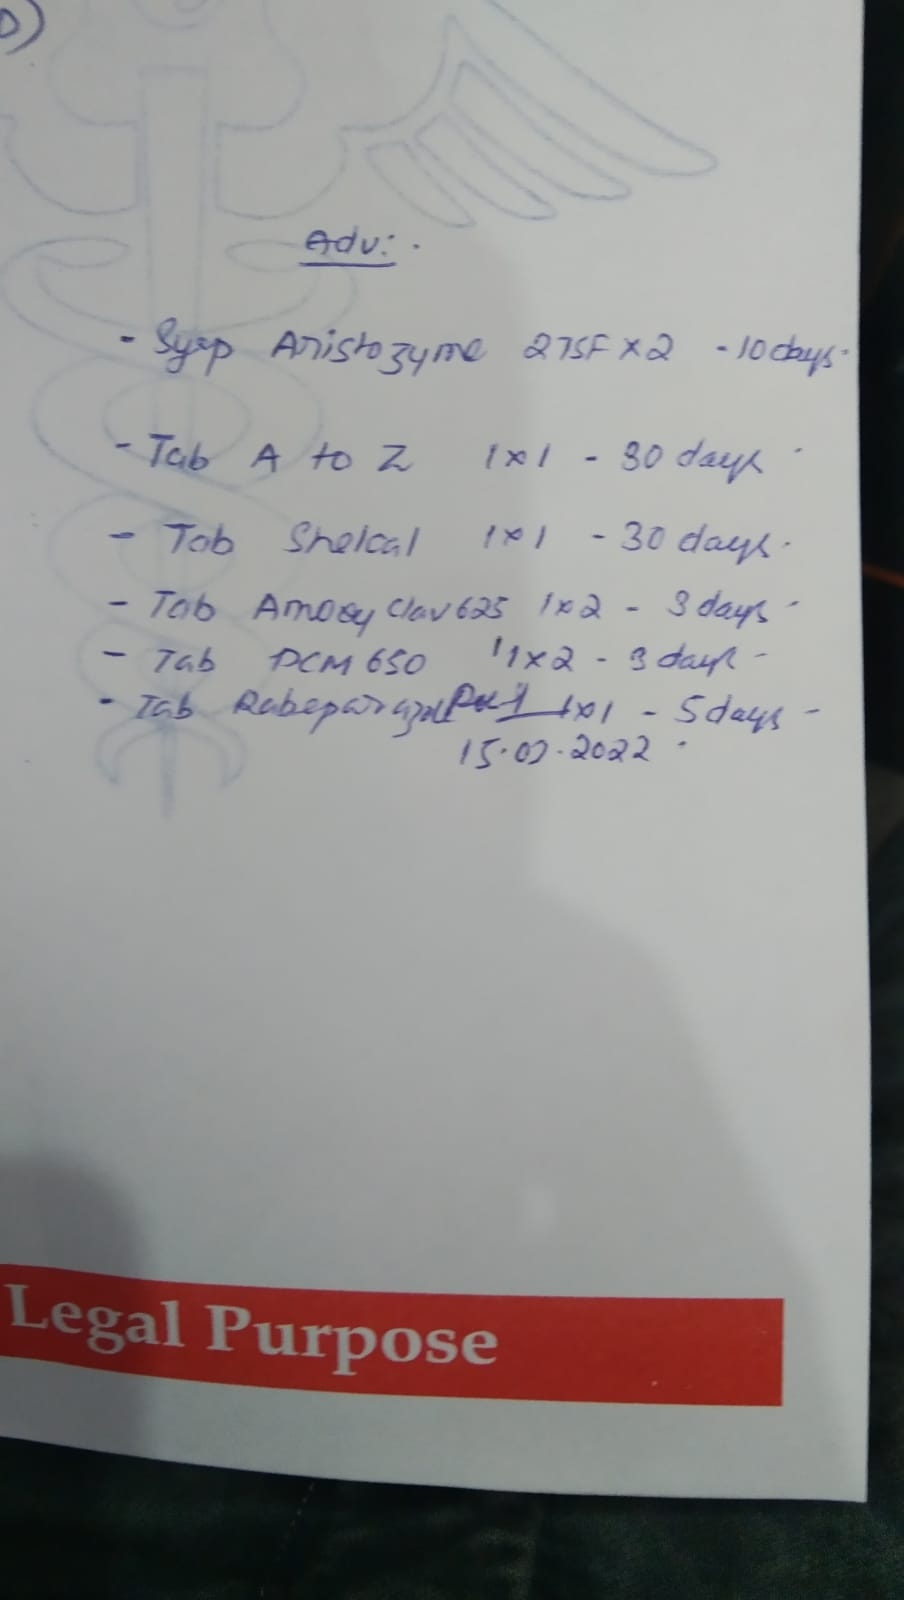 Adv:
- Syrp Aristozyme 2TSF x 2 - 10 days
- Tab A to Z 1x1 - 30 days
- Tab Shelcal 1x1 - 30 days
- Tab Amoxy Clav 625 1x2 - 3 days
- Tab PCM 650 1x2 - 3 days
- Tab Rabeparazole 1x1 - 5 days
15.07.2022
Legal Purpose